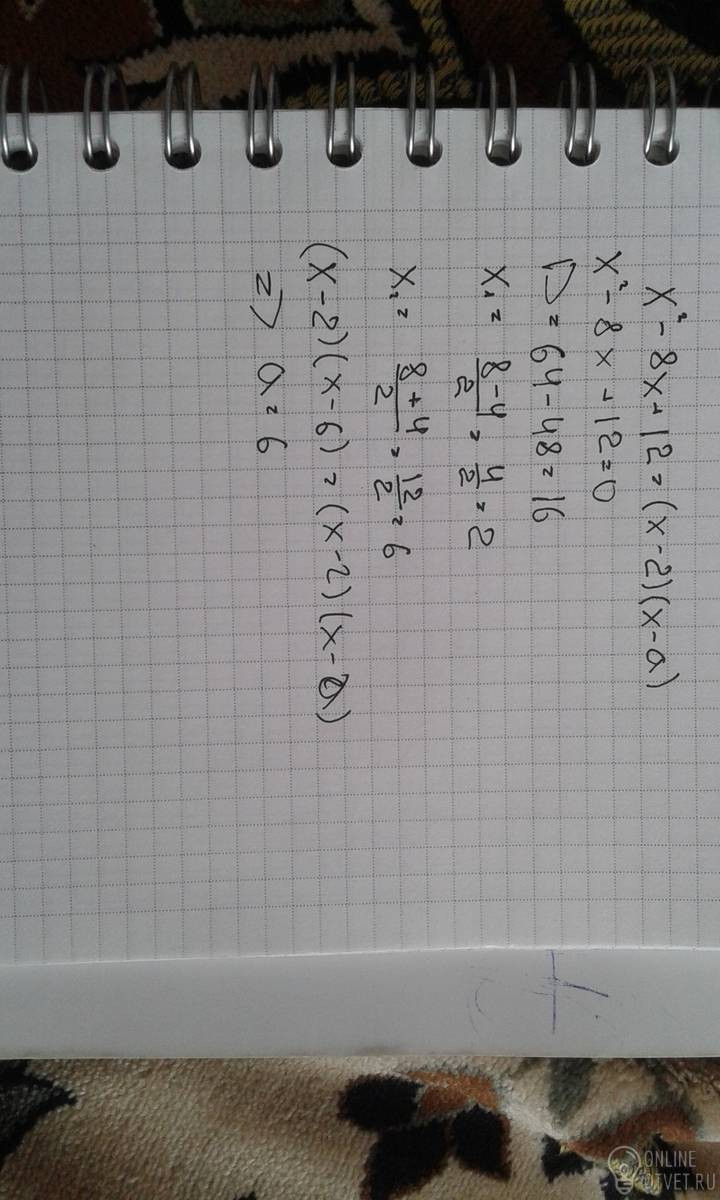 x² - 8x + 12 = (x - 2)(x - a)
x² - 8x + 12 = 0
D = 64 - 48 = 16
x₁ = \frac{8 - 4}{2} = \frac{4}{2} = 2
x₂ = \frac{8 + 4}{2} = \frac{12}{2} = 6
(x - 2)(x - 6) = (x - 2)(x - a)
=> a = 6
ONLINE
OTVET.RU